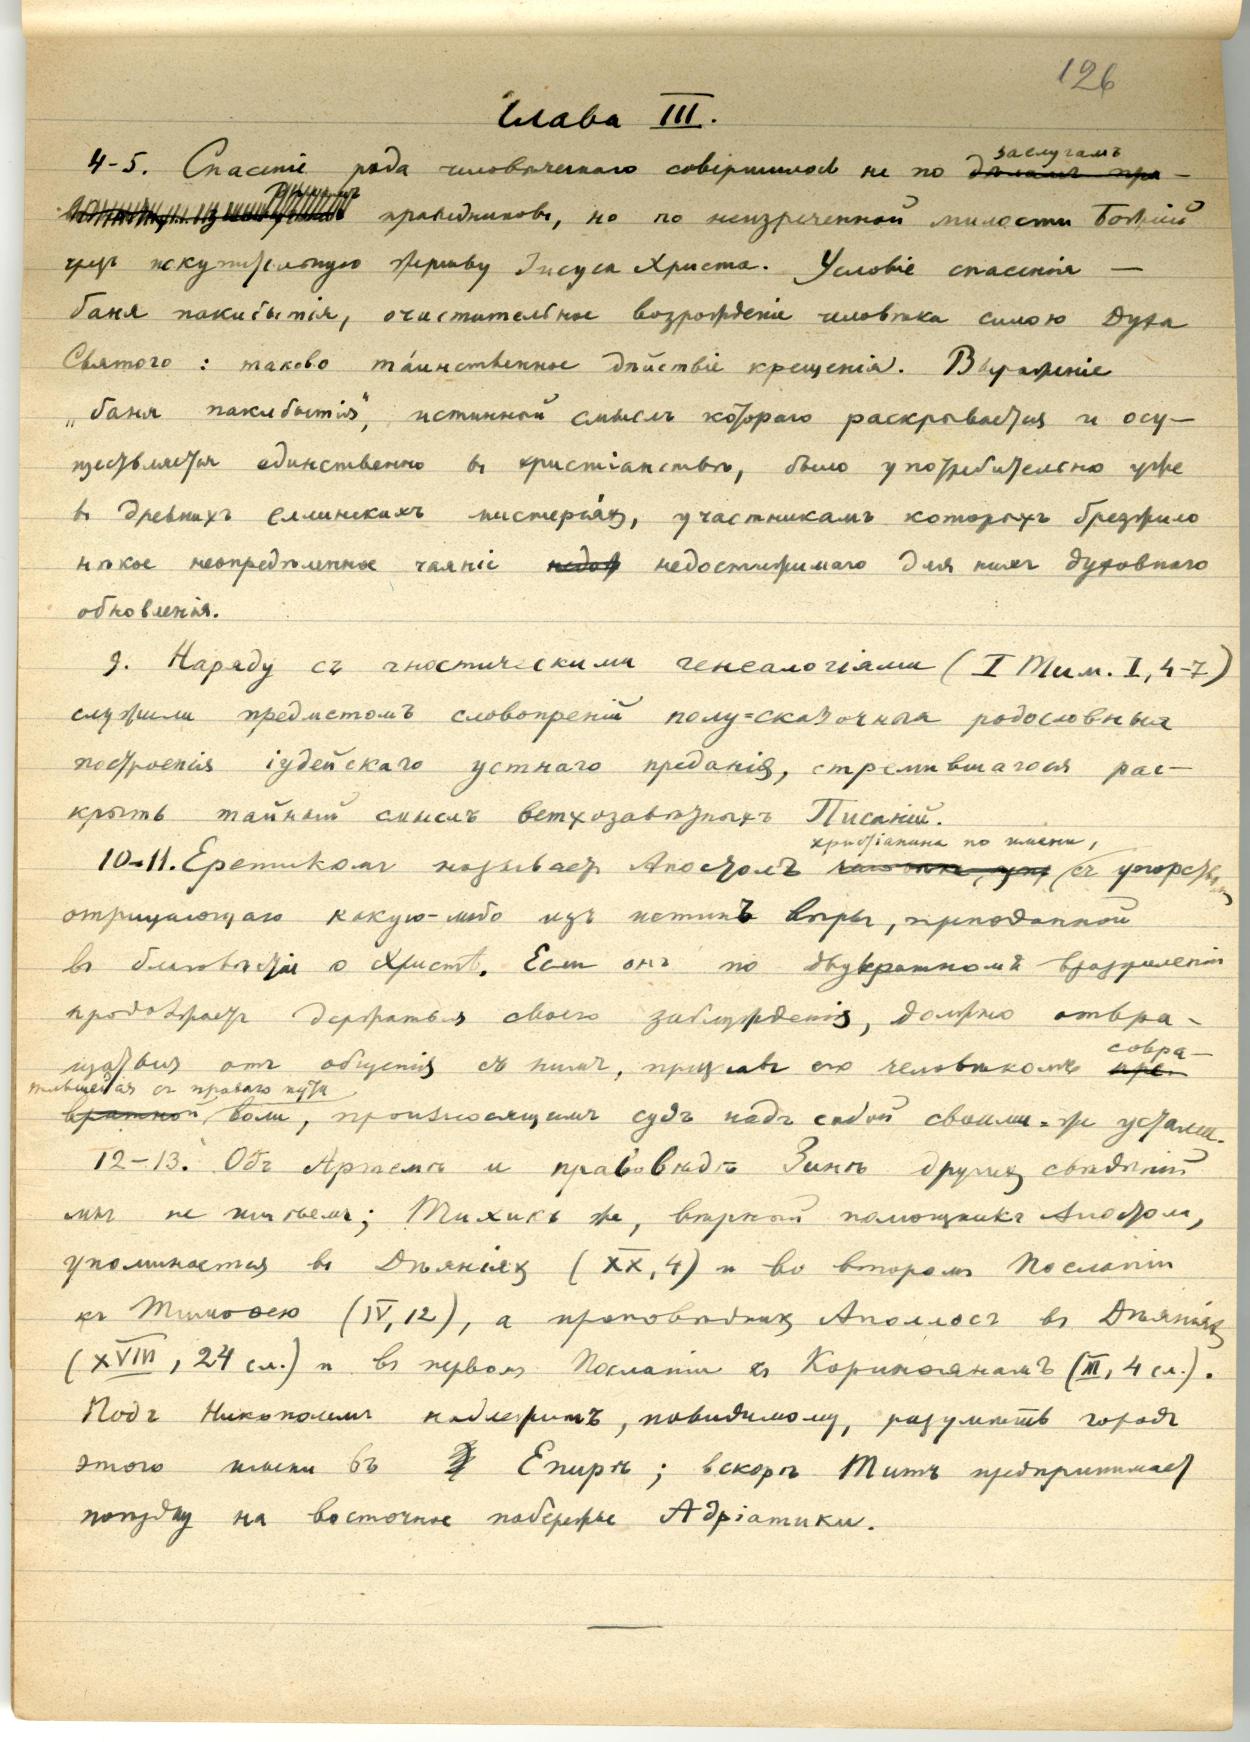 126
Глава III.
4-5. Спасеніе рода человѣческаго совершилось не по заслугамъ
праведниковъ, но по неизреченной милости Божіей
чрезъ искупительную жертву Іисуса Христа. Условіе спасенія —
баня пакибытія, очистительное возрожденіе человѣка силою Духа
Святого: таково таинственное дѣйствіе крещенія. Выраженіе
„баня пакибытія“, истинный смыслъ котораго раскрывается и осу-
ществляется единственно въ христіанствѣ, было употребительно уже
въ древнихъ еллинскихъ мистеріяхъ, участникамъ которыхъ брезжило
нѣкое неопредѣленное чаяніе недостижимаго для нихъ духовнаго
обновленія.
9. Наряду съ гностическими генеалогіями (I Тим. I, 4-7)
служили предметомъ словопреній полу=сказочныя родословныя
построенія іудейскаго устнаго преданія, стремившагося рас-
крыть тайный смыслъ ветхозавѣтныхъ Писаній.
10-11. Еретикомъ называетъ Апостолъ христіанина по имени, съ упорствомъ
отрицающаго какую-либо изъ истинъ вѣры, преподанной
въ благовѣстіи о Христѣ. Если онъ по двукратномъ вразумленіи
продолжаетъ держаться своего заблужденія, должно отвра-
щаться отъ общенія съ нимъ, признавъ его человѣкомъ совра-
тившейся съ праваго пути воли, произносящимъ судъ надъ собой своими=же устами.
12-13. Объ Артемѣ и правовѣдѣ Зинѣ другихъ свѣдѣній
мы не имѣемъ; Тихикъ же, вѣрный помощникъ Апостола,
упоминается въ Дѣяніяхъ (XX, 4) и во второмъ Посланіи
къ Тимоѳею (IV, 12), а проповѣдникъ Аполлосъ въ Дѣяніяхъ
(XVIII, 24 сл.) и въ первомъ Посланіи къ Коринѳянамъ (III, 4 сл.).
Подъ Никополемъ надлежитъ, повидимому, разумѣть городъ
этого имени въ Епирѣ; вскорѣ Титъ предпринимаетъ
поѣздку на восточное побережье Адріатики.